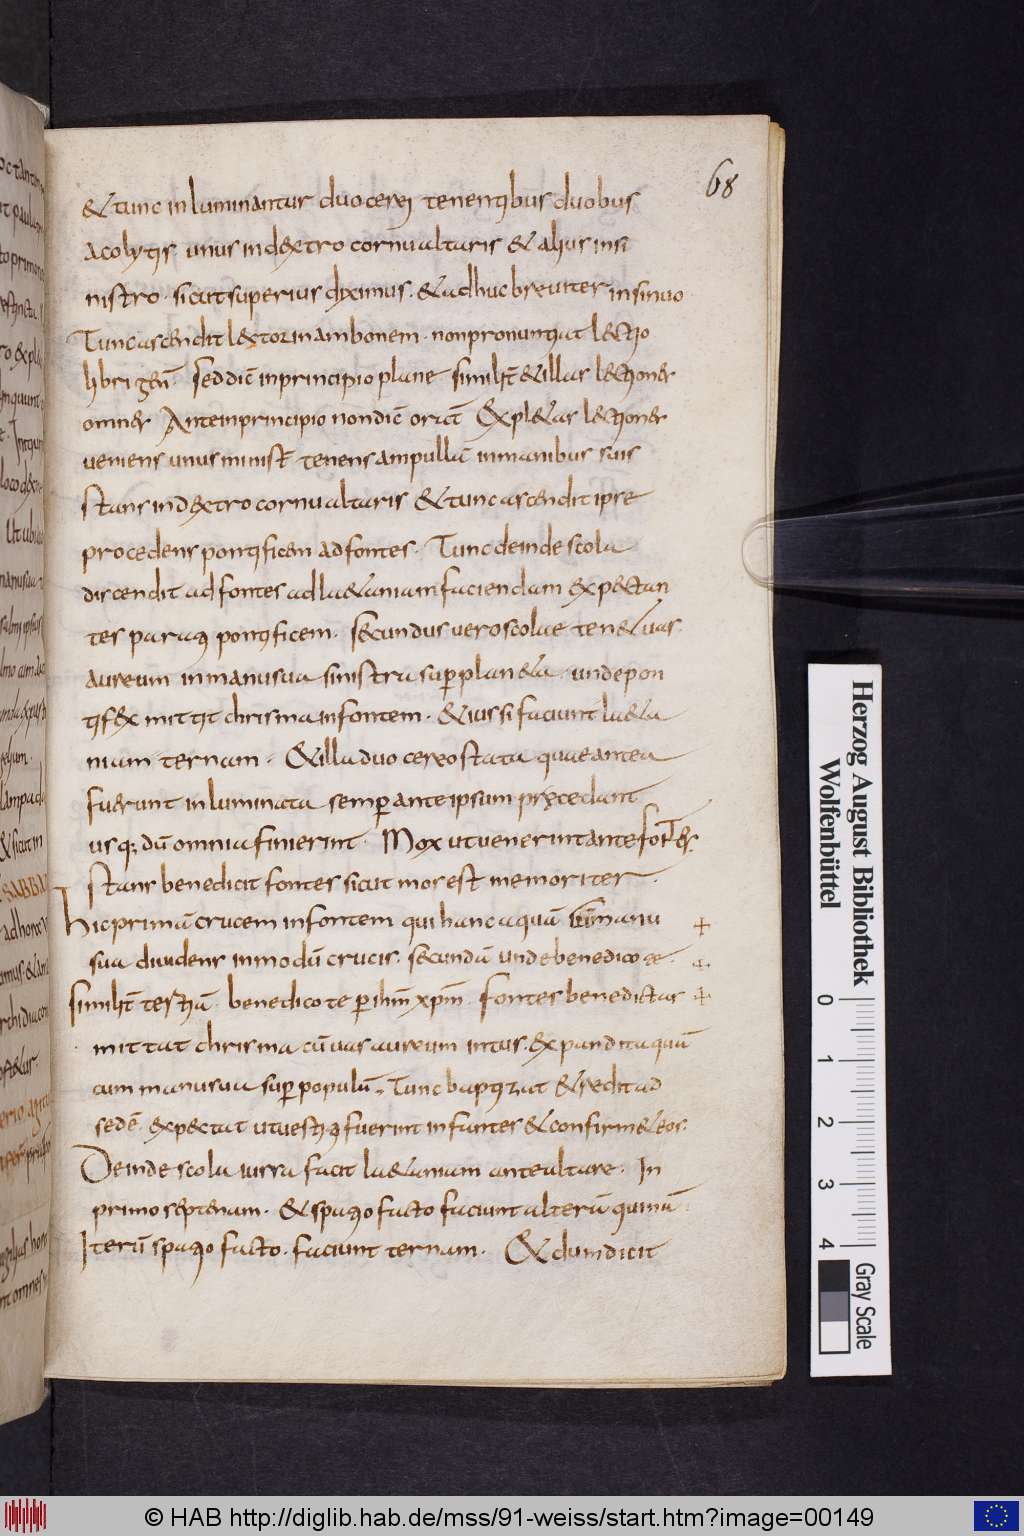 68
& tunc inluminantur duo cerei tenentibus duobus
acolytis unus in dextro cornu altaris & alius in si
nistro · sicut superius diximus · & adhuc breviter insinuo
Tunc ascendit lector in ambonem · non pronuntiat lectio
libri geñ · sed dic̄ in principio plane similit̄ & illas lectiones
omnes Ante in principio non dic̄ orat̄ Expletas lectiones
veniens unus minist̄ tenens ampullā in manibus suis
stans in dextro cornu altaris & tunc ascendit ipse
procedens pontificem ad fontes · Tunc deinde scola
discendit ad fontes ad laetaniam faciendam expectan
tes pontificem · secundus vero scolae tenet vas
aureum in manu sua sinistra sup planeta · unde pon
tifex mittit chrisma in fontem · & iussi faciunt laeta
niam ternam · & illa duo cereostata quae antea
fuerunt inluminata semp ante ipsum precedant
usq; dū omnia finierint · Mox ut venerint ante fontes
stans benedicit fontes sicut mos est memoriter ·
hic primā crucem in fontem qui hanc aquā manu +
sua dividens in modū crucis · secundā unde benedico te · +
similit̄ tertiā · benedico te p ihm̄ xpm̄ · fontes benedictas +
mittat chrisma cū vas aureum intus · expandit aquā
cum manu sua sup populū · Tunc baptizat & redit ad
sedē · expectat ut vestiti fuerint infantes & confirmet eos ·
Deinde scola iussa facit laetaniam ante altare · In
primo septenam · & spatio facto faciunt alterā quinā
Iterū spatio facto · faciunt ternam · Et dum dicit
Herzog August Bibliothek
Wolfenbüttel
0 1 2 3 4
Gray Scale
© HAB http://diglib.hab.de/mss/91-weiss/start.htm?image=00149